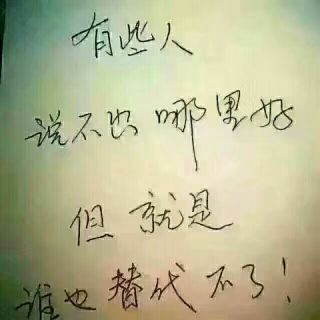 有些人
说不出哪里好
但就是
谁也替代不了!